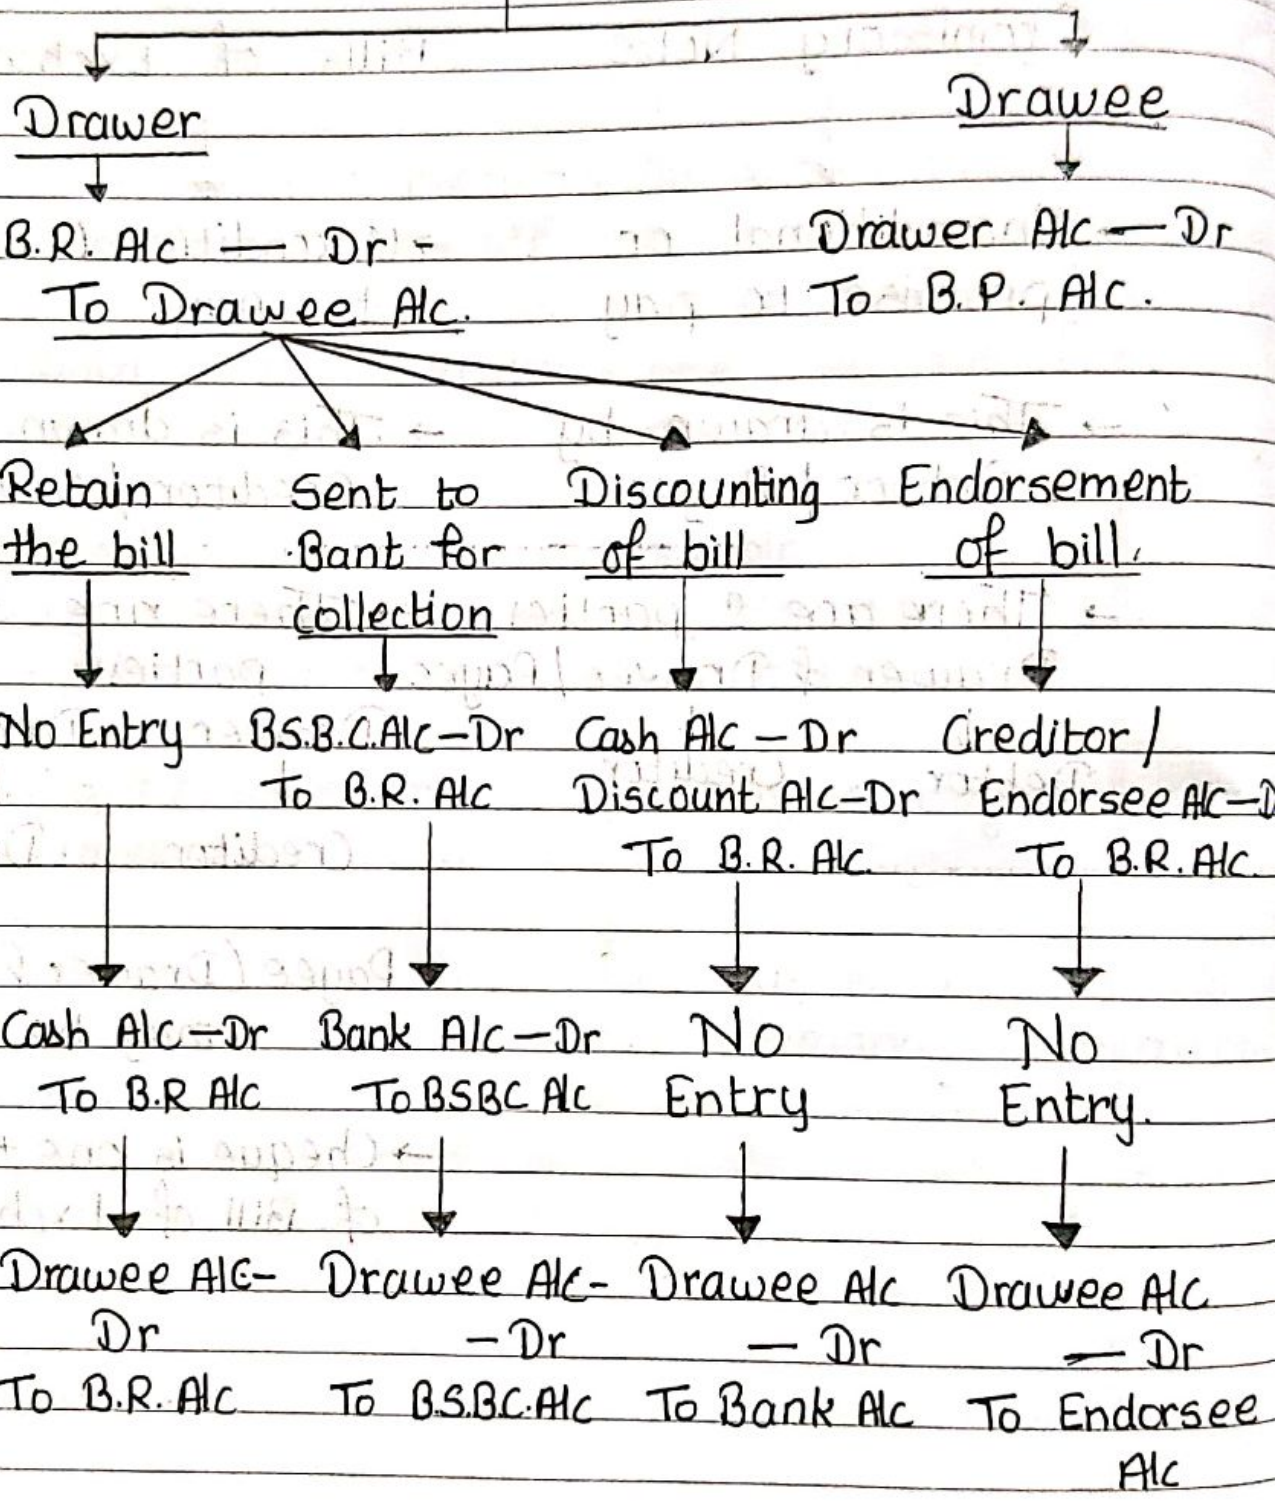 Drawer
Drawee
B.R. A/c — Dr -
To Drawee A/c.
Drawer A/c — Dr
To B.P. A/c.
Retain
the bill
Sent to
Bant for
collection
Discounting
of bill
Endorsement
of bill.
No Entry
B.S.B.C. A/c – Dr
To B.R. A/c
Cash A/c – Dr
Discount A/c – Dr
To B.R. A/c.
Creditor /
Endorsee A/c – D
To B.R. A/c.
Cash A/c – Dr
To B.R A/c
Bank A/c – Dr
To BSBC A/c
No
Entry
No
Entry.
Drawee A/c-
Dr
To B.R. A/c
Drawee A/c-
– Dr
To B.S.B.C. A/c
Drawee A/c
— Dr
To Bank A/c
Drawee A/c
— Dr
To Endorsee
A/c